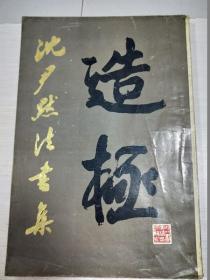 造極
沈尹默法書集